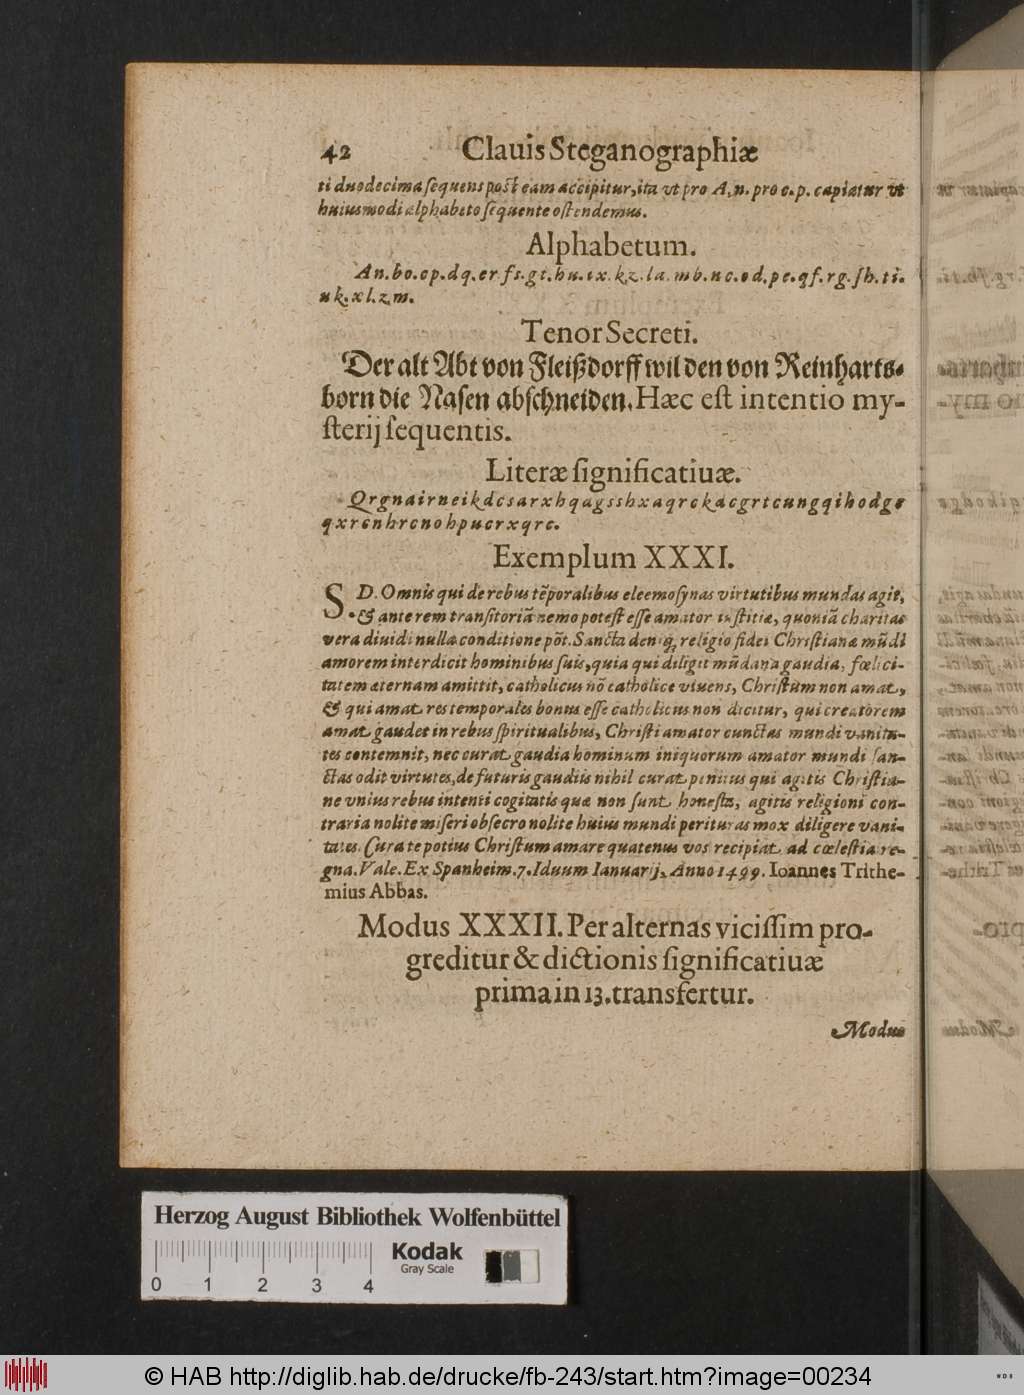 42 Clauis Steganographiæ
ti duodecima ſequens poſt eam accipitur, ita vt pro A, n. pro c. p. capiatur vt
huiusmodi alphabeto ſequente oſtendemus.
Alphabetum.
An. bo. cp. dq. er. fs. gt. hu. ix. kz. la. mb. nc. od. pe. qf. rg. ſh. ti.
uk. xl. zm.
Tenor Secreti.
Der alt Abt von Fleißdorff wil den von Reinharts-
born die Naſen abſchneiden. Hæc eſt intentio my-
ſterij ſequentis.
Literæ ſignificatiuæ.
Qrgnairneikdcsarxhqagsshxaqrckacgrtcungqihodgo
qxrcnhrcnohpucrxqrc.
Exemplum XXXI.
S. D. Omnis qui de rebus tẽporalibus eleemoſynas virtutibus mundas agit,
& ante rem tranſitoriã nemo poteſt eſſe amator iuſtitiæ, quoniã charitas
vera diuidi nulla conditione põt. Sancta deniq; religio fidei Chriſtiana mũdi
amorem interdicit hominibus ſuis, quia qui diligit mũdana gaudia, fœlici-
tatem æternam amittit, catholicus nõ catholice viuens, Chriſtum non amat,
& qui amat res temporales bonus eſſe catholicus non dicitur, qui creatorem
amat gaudet in rebus ſpiritualibus, Chriſti amator cunctas mundi vanita-
tes contemnit, nec curat gaudia hominum iniquorum amator mundi ſan-
ctas odit virtutes, de futuris gaudiis nihil curat penitus qui agitis Chriſtia-
ne vnius rebus intenti cogitatis quæ non ſunt honeſta, agitis religioni con-
traria nolite miſeri obſecro nolite huius mundi perituras mox diligere vani-
tates. Curate potius Chriſtum amare quatenus vos recipiat ad cœleſtia re-
gna. Vale. Ex Spanheim. 7. Iduum Ianuarij, Anno 1499. Ioannes Trithe-
mius Abbas.
Modus XXXII. Per alternas viciſſim pro-
greditur & dictionis ſignificatiuæ
prima in 13. transfertur.
Modus
Herzog August Bibliothek Wolfenbüttel
Kodak
Gray Scale
0 1 2 3 4
© HAB http://diglib.hab.de/drucke/fb-243/start.htm?image=00234